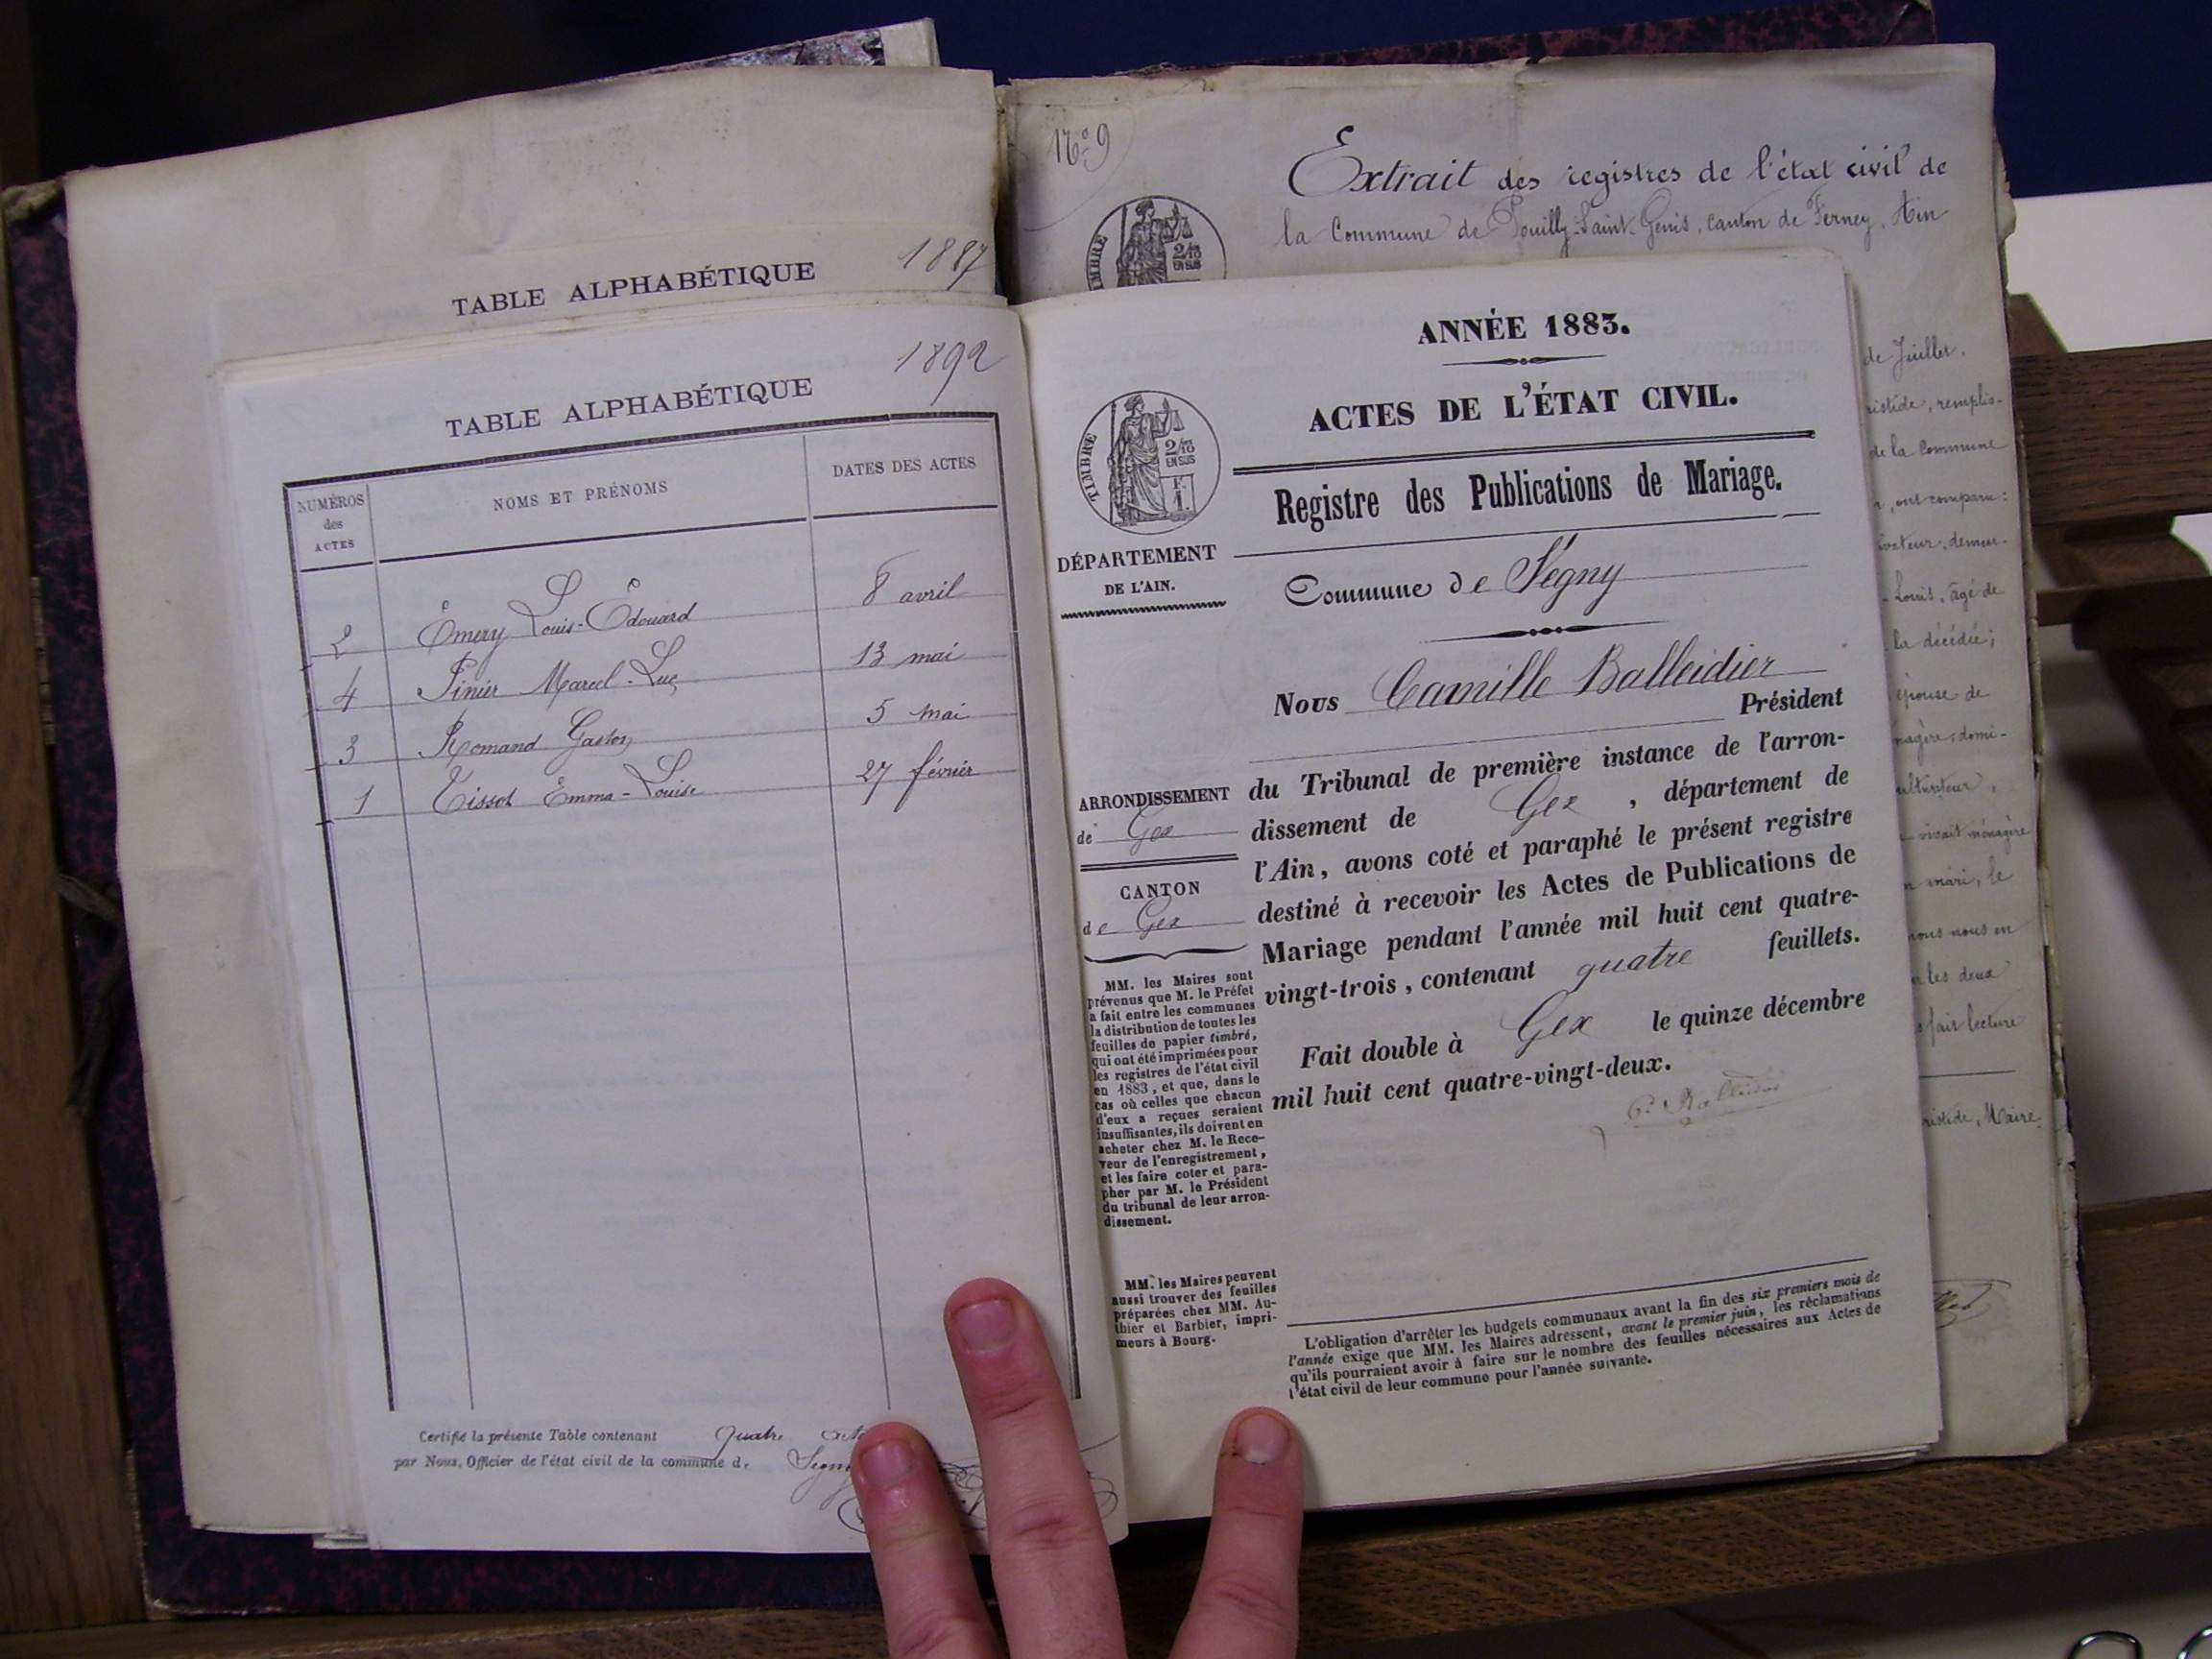 TABLE ALPHABÉTIQUE
1887
TABLE ALPHABÉTIQUE
1892
NUMÉROS
des
ACTES
NOMS ET PRÉNOMS
DATES DES ACTES
2 Émery Louis-Édouard 8 avril
4 Pinier Marcel-Luc 13 mai
3 Romand Gaston 5 mai
1 Tissot Emma-Louise 27 février
Certifié la présente Table contenant quatre
par Nous, Officier de l'état civil de la commune de
N° 9
Extrait des registres de l'état civil de
la Commune de Pouilly-Saint-Genis, canton de Ferney, Ain
TIMBRE
2/10
EN SUS
ANNÉE 1883.
ACTES DE L'ÉTAT CIVIL.
TIMBRE
2/10
EN SUS
F.
1.
Registre des Publications de Mariage.
DÉPARTEMENT
DE L'AIN.
Commune de Ségny
Nous Camille Balleidier
Président
du Tribunal de première instance de l'arron-
dissement de Gex, département de
l'Ain, avons coté et paraphé le présent registre
destiné à recevoir les Actes de Publications de
Mariage pendant l'année mil huit cent quatre-
vingt-trois, contenant quatre feuillets.
Fait double à Gex le quinze décembre
mil huit cent quatre-vingt-deux.
C. Balleidier
ARRONDISSEMENT
de Gex
CANTON
de Gex
MM. les Maires sont
prévenus que M. le Préfet
a fait entre les communes
la distribution de toutes les
feuilles de papier timbré,
qui ont été imprimées pour
les registres de l'état civil
en 1883, et que, dans le
cas où celles que chacun
d'eux a reçues seraient
insuffisantes, ils doivent en
acheter chez M. le Rece-
veur de l'enregistrement,
et les faire coter et para-
pher par M. le Président
du tribunal de leur arron-
dissement.
MM. les Maires peuvent
aussi trouver des feuilles
préparées chez MM. Au-
thier et Barbier, impri-
meurs à Bourg.
L'obligation d'arrêter les budgets communaux avant la fin des six premiers mois de
l'année exige que MM. les Maires adressent, avant le premier juin, les réclamations
qu'ils pourraient avoir à faire sur le nombre des feuilles nécessaires aux Actes de
l'état civil de leur commune pour l'année suivante.
de Juillet.
, remplis-
de la Commune
, ont comparu:
, demeu-
Louis, âgé de
la décédée;
épouse de
domi-
vivait ménagère
mari, le
nous nous en
les deux
fait lecture
, Maire.